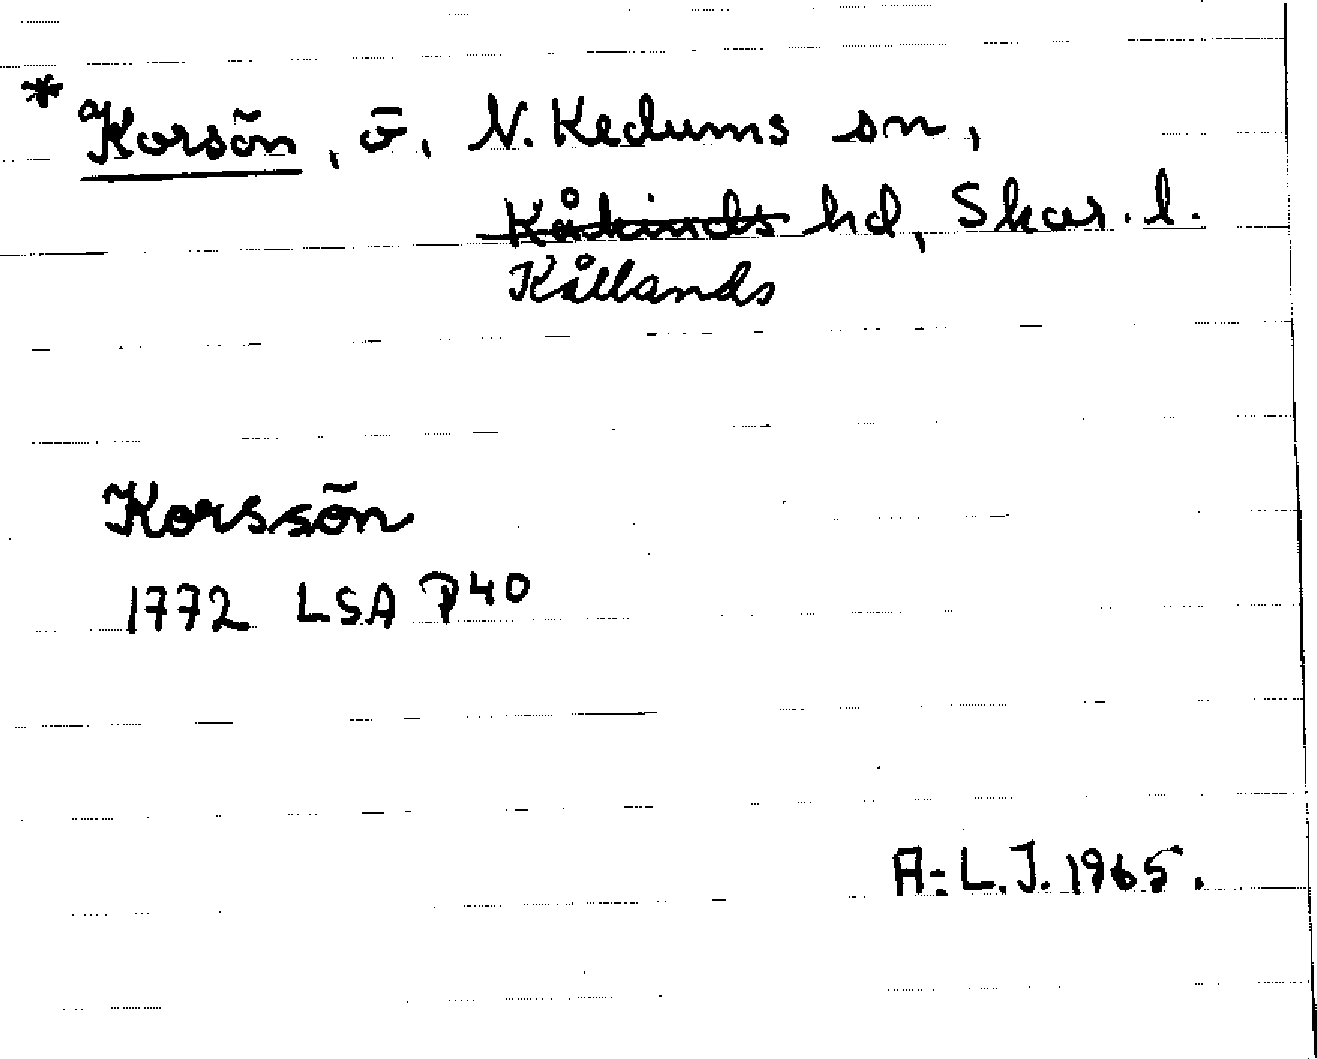 * Korsön, ö, N. Kedums sn,
Kåkinds hd, Skar. l.
Kållands
Korssön
1772 LSA P40
A-L.J. 1965.